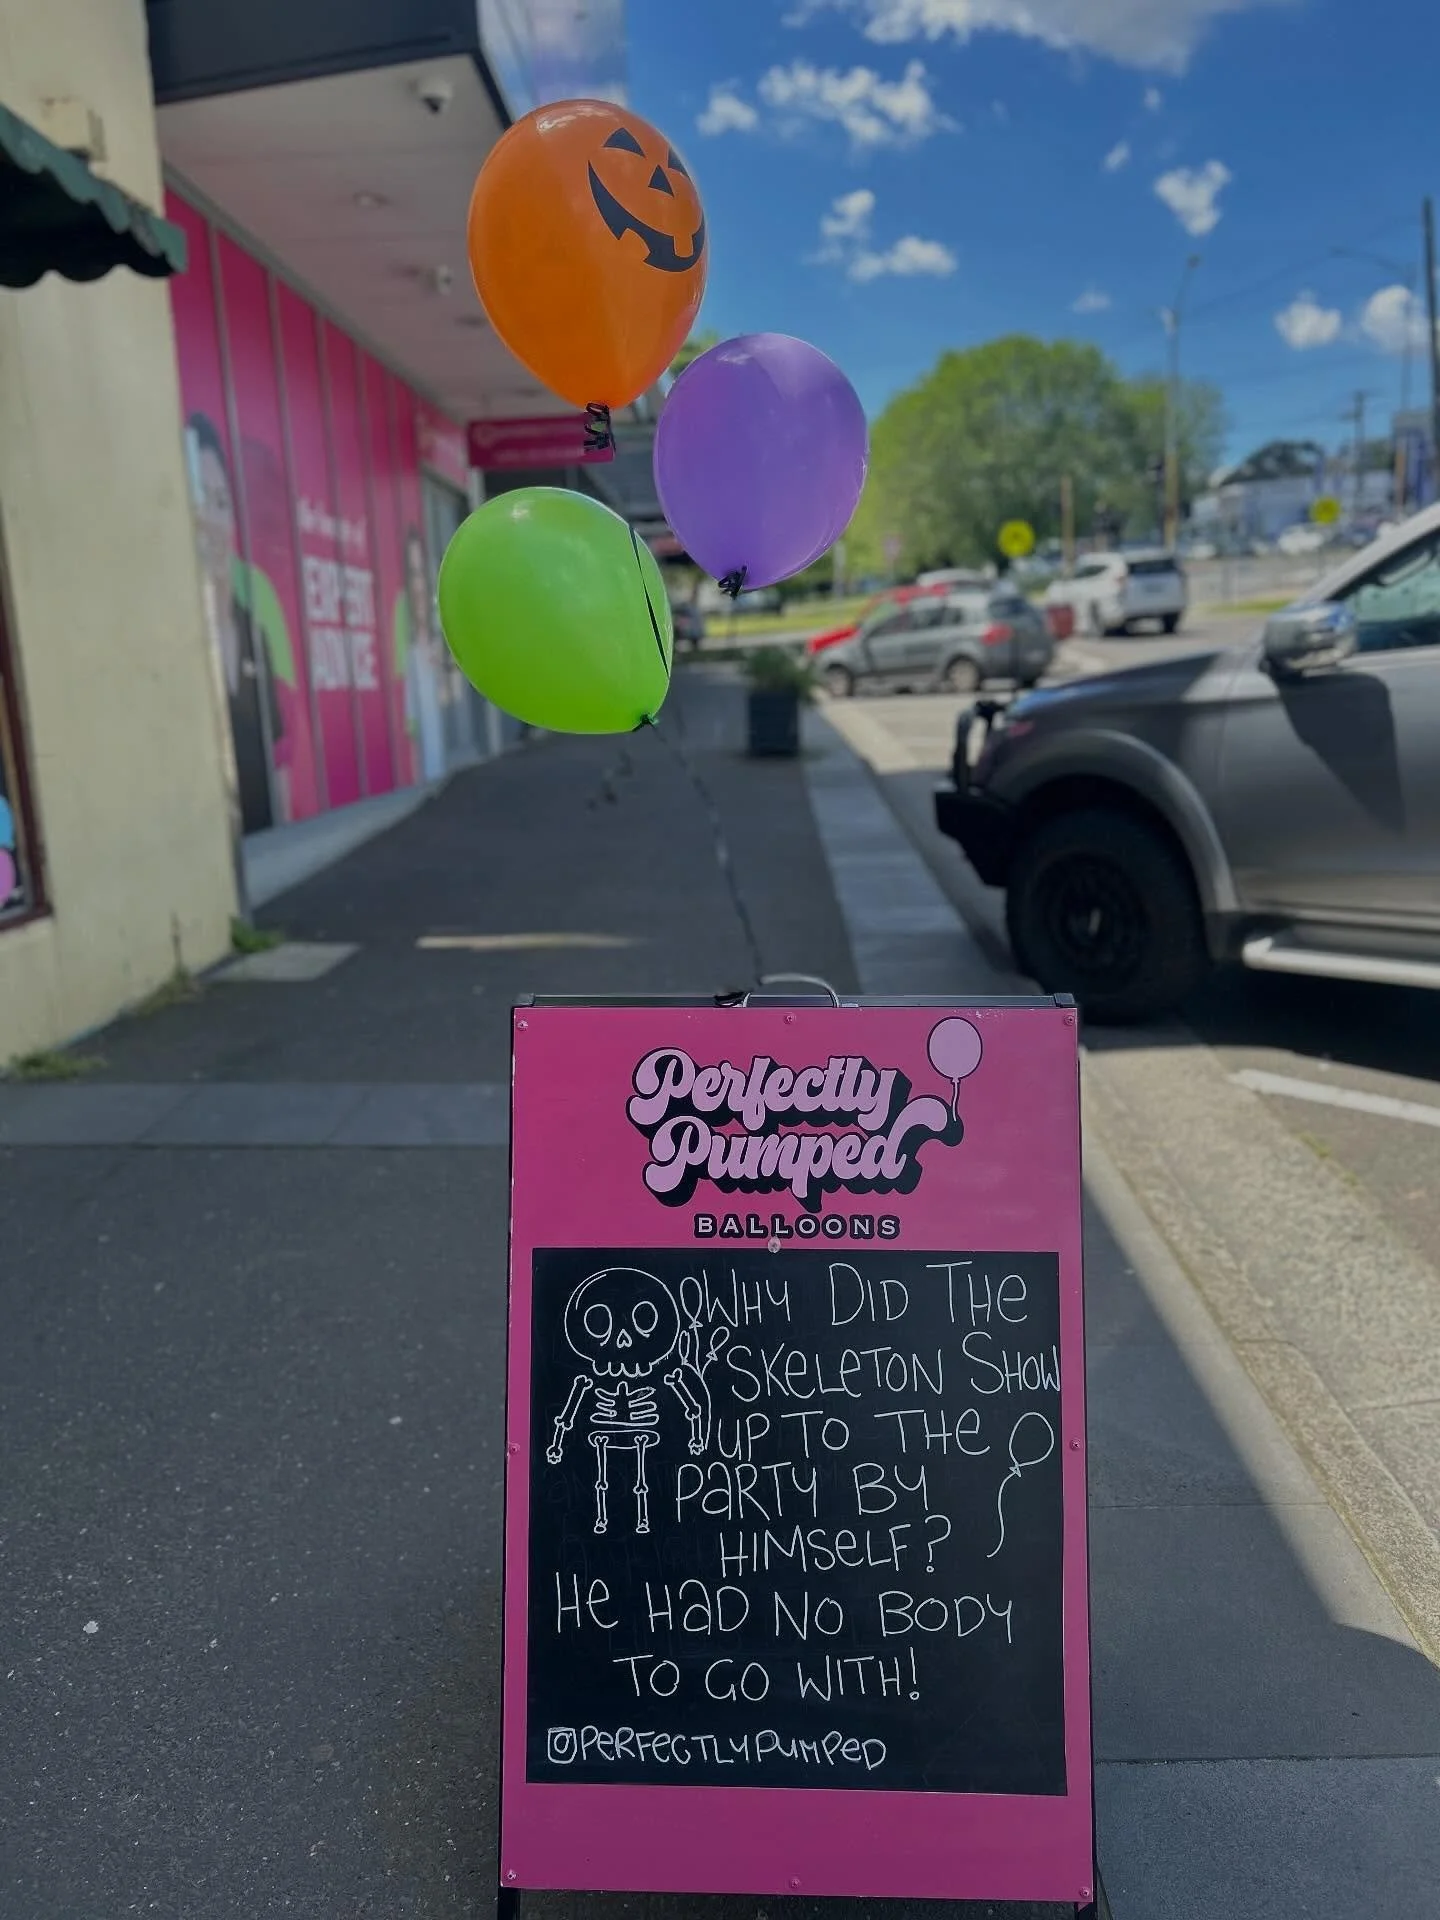 EXPERT
ADVICE
Perfectly
Pumped
BALLOONS
WHY DID THE
SKELETON SHOW
UP TO THE
PARTY BY
HIMSELF?
HE HAD NO BODY
TO GO WITH!
PERFECTLYPUMPED